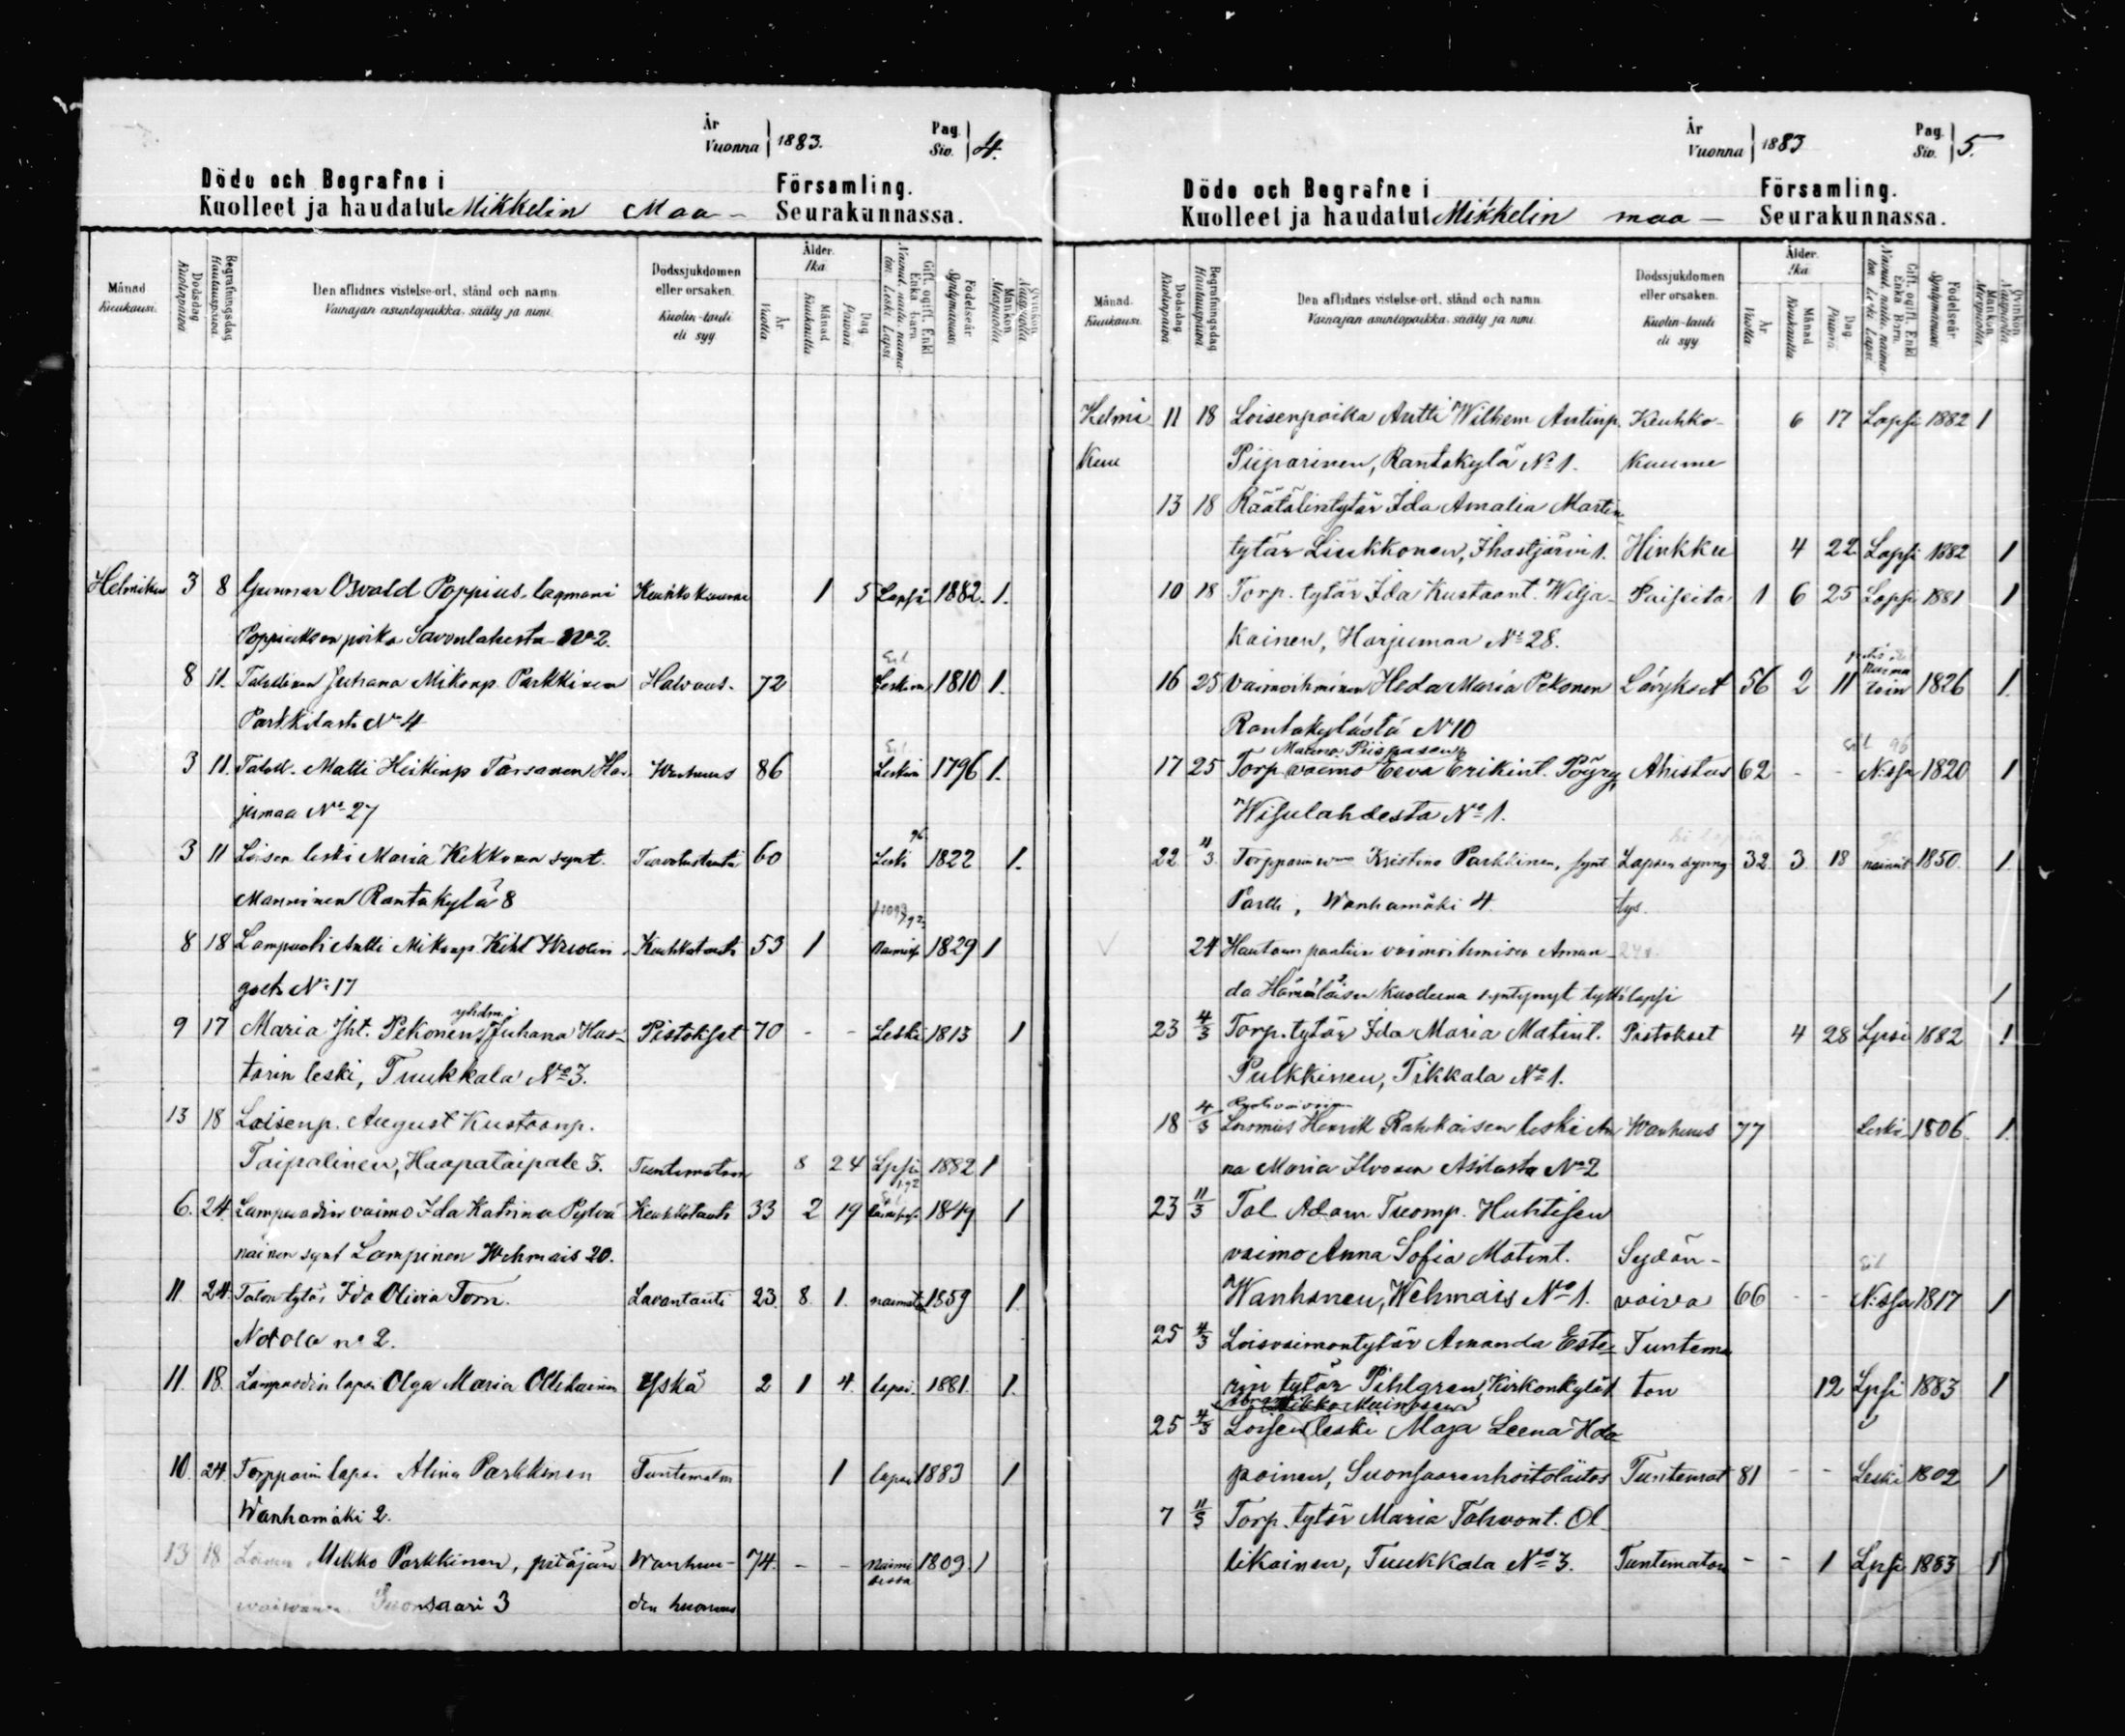 År
Vuonna 1883.
Pag.
Siv. 4.
Döde och Begrafne i Församling.
Kuolleet ja haudatut Mikkelin Maa- Seurakunnassa.
Månad Kuukausi.
Dödsdag Kuolinpäiwä
Begrafningsdag Hautauspäiwä
Den aflidnes vistelse-ort, stånd och namn.
Vainajan asuntopaikka, sääty ja nimi.
Dödssjukdomen eller orsaken.
Kuolin-tauti eli syy.
Ålder. Ikä.
År. Vuotta
Månad Kuukautta
Dag Päiwää
Gift, ogift, Enkl. Enka Barn.
Nainut, naitu, naimaton. Leski. Lapsi.
Födelseår Syntymävuosi
Mankön Miespuolia
Qvinkön Naispuolia
Helmikuu 3 8 Gunnar Osvald Poppius, lagmani Keuhkokuume 1 5 Lapsi 1882. 1.
Poppiuksen poika Savonlahesta No 2.
8 11. Talollinen Juhana Mikonp. Parkkinen Halvaus. 72 Leskim 1810 1.
Parkkilasta No 4
3 11. Taloll. Matti Heikinp Tarsanen, Har- Wanhuus 86 Leskim 1796 1.
jumaa No 27
3 11 Loisen leski Maria Kekkonen synt. 60 Leski 1822 1.
Manninen Rantakylä 8
8 18 Lampuoti Antti Mikonp. Kiht Keuhkotauti 53 1 1829 1
No 17
9 17 Maria Jht. Pekonen, Juhana Has- Pistokset 70 - - Leski 1813 1
tarin leski, Tuukkala No 3.
13 18 Loisenp. August Kustaanp.
Taipalinen, Haapataipale 3. Tuntematon 8 24 Lpsi 1882 1
6. 24. Lampuodin vaimo Ida Katrina Pylvä Keuhkotauti 33 2 19 1849 1
näinen synt Lampinen Wehmais 20.
11. 24. Talon tytär Ida Olivia Torn. Lavantauti 23. 8. 1. naimaton 1859 1.
Notola no 2.
11. 18. Lampuodin lapsi Olga Maria Ollikainen Yskä 2 1 4. lapsi. 1881. 1.
10. 24. Torpparin lapsi Alina Parkkinen Tuntematon 1 lapsi 1883 1
Wanhamäki 2.
13 18 Loinen Mikko Parkkinen, pitäjän Wanhuu- 74. - - Naimi 1809. 1
waiwanen Suonsaari 3 den huonous sessa
År
Vuonna 1883
Pag.
Siv. 5.
Döde och Begrafne i Församling.
Kuolleet ja haudatut Mikkelin maa- Seurakunnassa.
Månad. Kuukausi.
Dödsdag Kuolinpäiwä
Begrafningsdag Hautauspäiwä
Den aflidnes vistelse-ort, stånd och namn.
Vainajan asuntopaikka, sääty ja nimi.
Dödssjukdomen eller orsaken.
Kuolin-tauti eli syy.
Ålder. Ikä.
År. Vuotta
Månad Kuukautta
Dag Päiwää
Gift, ogift, Enkl. Enka Barn.
Nainut, naitu, naimaton. Leski. Lapsi.
Födelseår Syntymävuosi
Mankön Miespuolia
Qvinkön Naispuolia
Helmi 11 18 Loisenpoika Antti Wilhem Antinp. Keuhko- 6 17 Lapsi 1882 1
Kuu Piiparinen, Rantakylä No 1. kuume
13 18 Räätälintytär Ida Amalia Martin
tytär Liukkonen, Ihastjärvi 1. Hinkku 4 22 Lapsi 1882 1
10 18 Torp. tytär Ida Kustaant. Wilja- Paiseita 1 6 25 Lapsi 1881 1
kainen, Harjumaa No 28.
16 25 Vaimoihminen Heda Maria Pekonen Lävykset 56 2 11 Naima toin 1826 1.
Rantakylästä No 10
Manno Piispasen
17 25 Torp. vaimo Eeva Erikint. Pöyry, Ahistus 62 - - N:ssa 1820 1
Wisulahdesta No 1.
22 11/3. Torpparin wmo Kristina Parkkinen, synt Lapsen synny 32. 3. 18 nainut 1850. 1.
Partti, Wanhamäki 4. tys.
24 Hautaan pantiin vaimoihmisen Aman-
da Hämäläisen kuolleena syntynyt tyttölapsi 1
23 4/3 Torp. tytär Ida Maria Matint. Pistokset 4 28 Lpsi 1882 1
Pulkkinen, Tikkala No 1.
18 4/3 Henrik Rahikaisen leski An Wanhuus 77 Leski 1806. 1.
na Maria Ilvonen Asilasta No 2
23 11/3 Tal Adam Tuomp. Huhtisen
vaimo Anna Sofia Matint. Sydän-
Wanhanen, Wehmais No 1. vaiva 66 - - N:ssa 1817 1
25 4/3 Loisvaimontytär Amanda Este- Tuntema
rin tytär Pihlgren, Kirkonkylät ton 12 Lpsi 1883 1
25 4/3 Loisen leski Maja Leena Hda
painen, Suonsaarenhoitolaitos Tuntemat 81 - - Leski 1802 1
7 11/3 Torp. tytär Maria Tahvont. Ol
likainen, Tuukkala No 3. Tuntematon - - 1 Lpsi 1883 1